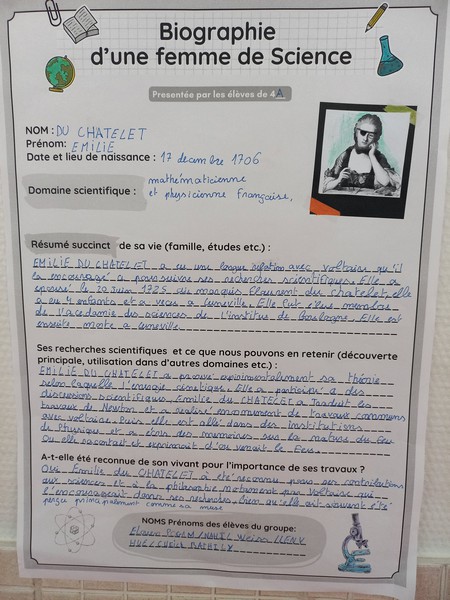 Biographie
d'une femme de Science
Présentée par les élèves de 4A
NOM : DU CHATELET
Prénom: EMILIE
Date et lieu de naissance : 17 décembre 1706
Domaine scientifique : mathématicienne
et physicienne Française,
Résumé succinct de sa vie (famille, études etc.) :
EMILIE DU CHATELET a eu une longue relation avec Voltaire qu'il
la encouragé à poursuivre ses recherches scientifiques. Elle a
épousé le 20 juin 1725 au marquis Florent du chatelet, elle
a eu 4 enfants et a vécu à Luneville. Elle fut élue membre
de l'académie des sciences de l'institut de Boulogne. Elle est
ensuite morte a Luneville
Ses recherches scientifiques et ce que nous pouvons en retenir (découverte
principale, utilisation dans d'autres domaines etc.) :
EMILIE DU CHATELET a prouvé expérimentalement sa théorie
selon laquelle l'énergie cinétique. Elle a participé a des
discussions scientifiques. Emilie du CHATELET a Traduit les
travaux de Newton et a réalisé énormément de travaux communs
avec voltaire. Puis elle est allé dans des institutions
de Physique et a écris des mémoires sur la nature du Feu
Où elle racontait et exprimait d'où venait le Feu.
A-t-elle été reconnue de son vivant pour l'importance de ses travaux ?
Oui Emilie du CHATELET à été reconnu pour ses contributions
aux sciences et à la philosophie notamment par Voltaire qui
l'encourageait dans ses recherches bien qu'elle ait souvent été
perçu principalement comme sa muse
NOMS Prénoms des élèves du groupe: